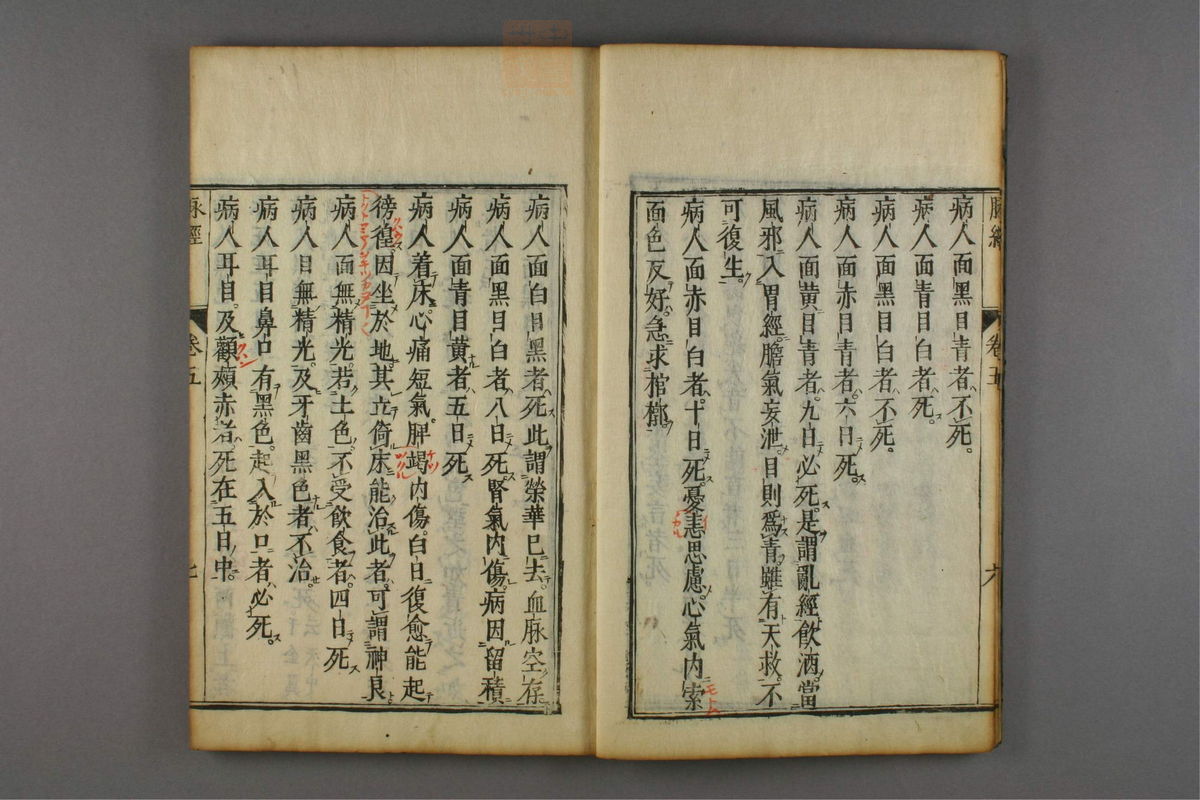 病人面黑目青者不死。
病人面青目白者死。
病人面黑目白者不死。
病人面赤目青者六日死。
病人面黃目青者九日必死。是謂亂經飲酒當
風邪入胃經膽氣妄泄目則爲青雖有天救不
可復生。
病人面赤目白者十日死。憂恚思慮心氣內索
面色反好。急求棺槨。
病人面白目黑者死此謂榮華已去。血脉空存
病人面黑目白者八日死。腎氣內傷。病因留積
病人面青目黃者五日死
病人着床。心痛短氣。脾竭內傷。百日復愈能起
徬徨因坐於地其立倚床能治此者。可謂神良
病人面無精光。若土色。不受飲食者。四日死
病人目無精光。及牙齒黑色者不治。
病人耳目鼻口有黑色。起入於口者必死。
病人耳目。及顴頰赤者。死在五日中。
脉經
卷五
六
脉經
卷五
七